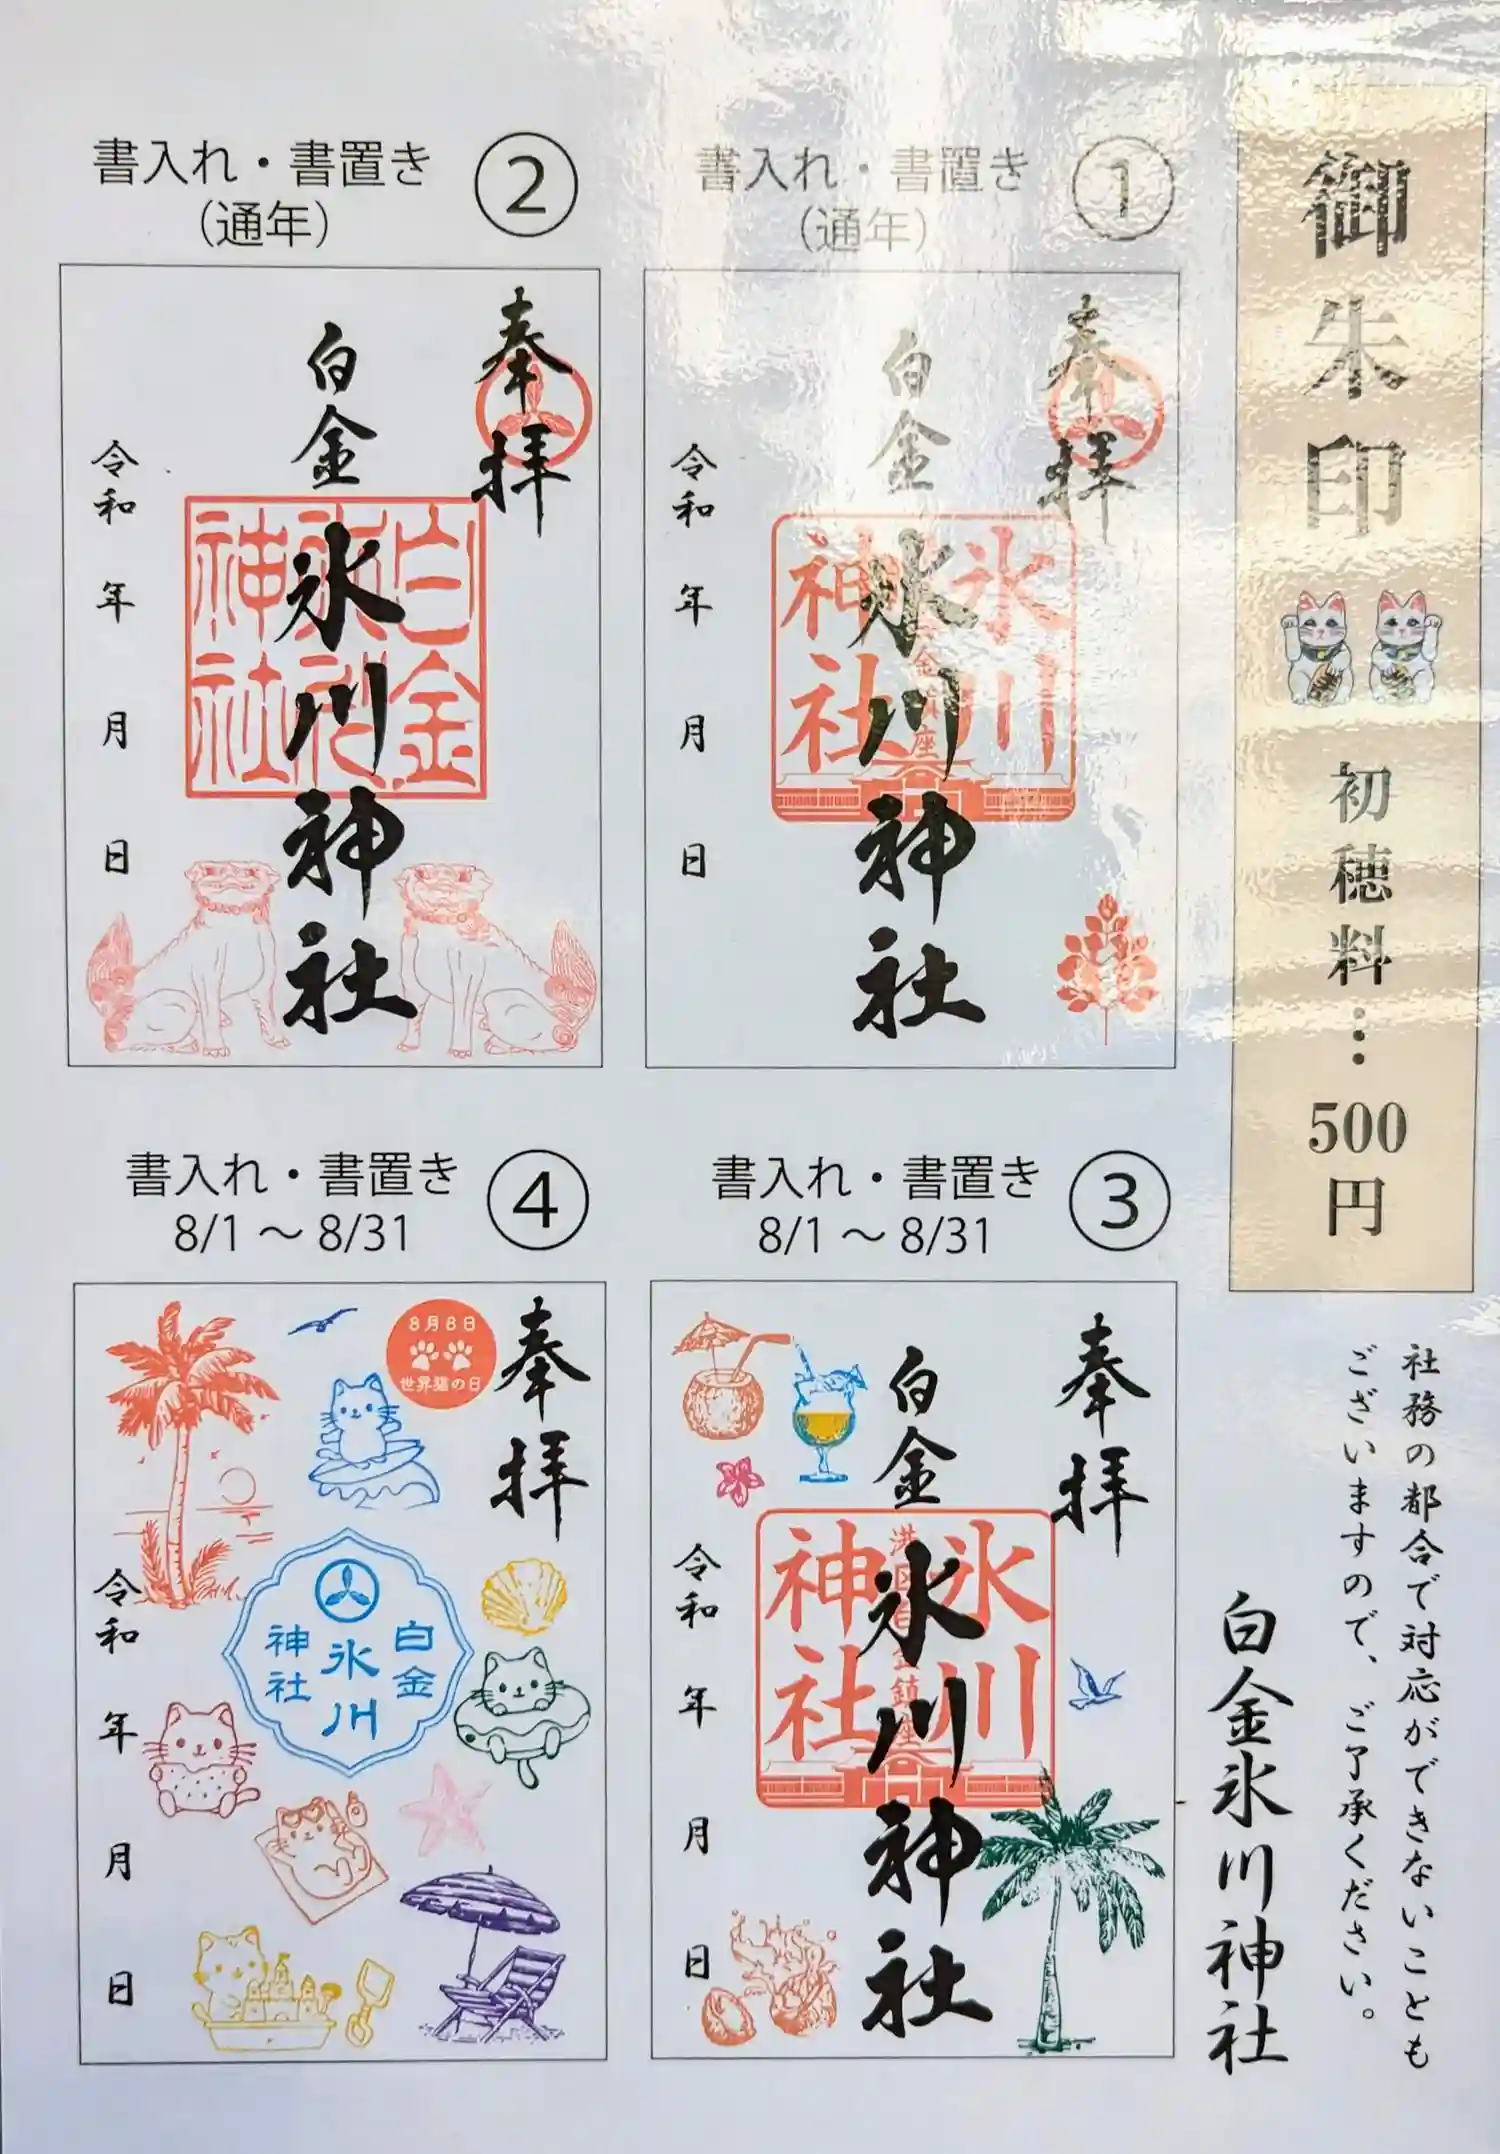 御朱印
初穂料…500円
①
書入れ・書置き
(通年)
奉拝
白金
氷川神社
氷川
神社
令和 年 月 日
②
書入れ・書置き
(通年)
奉拝
白金
氷川神社
白金
神社
令和 年 月 日
③
書入れ・書置き
8/1 ～ 8/31
奉拝
白金
氷川神社
氷川
神社
令和 年 月 日
④
書入れ・書置き
8/1 ～ 8/31
奉拝
8月8日
世界猫の日
白金
氷川
神社
令和 年 月 日
社務の都合で対応ができないことも
ございますので、ご了承ください。
白金氷川神社